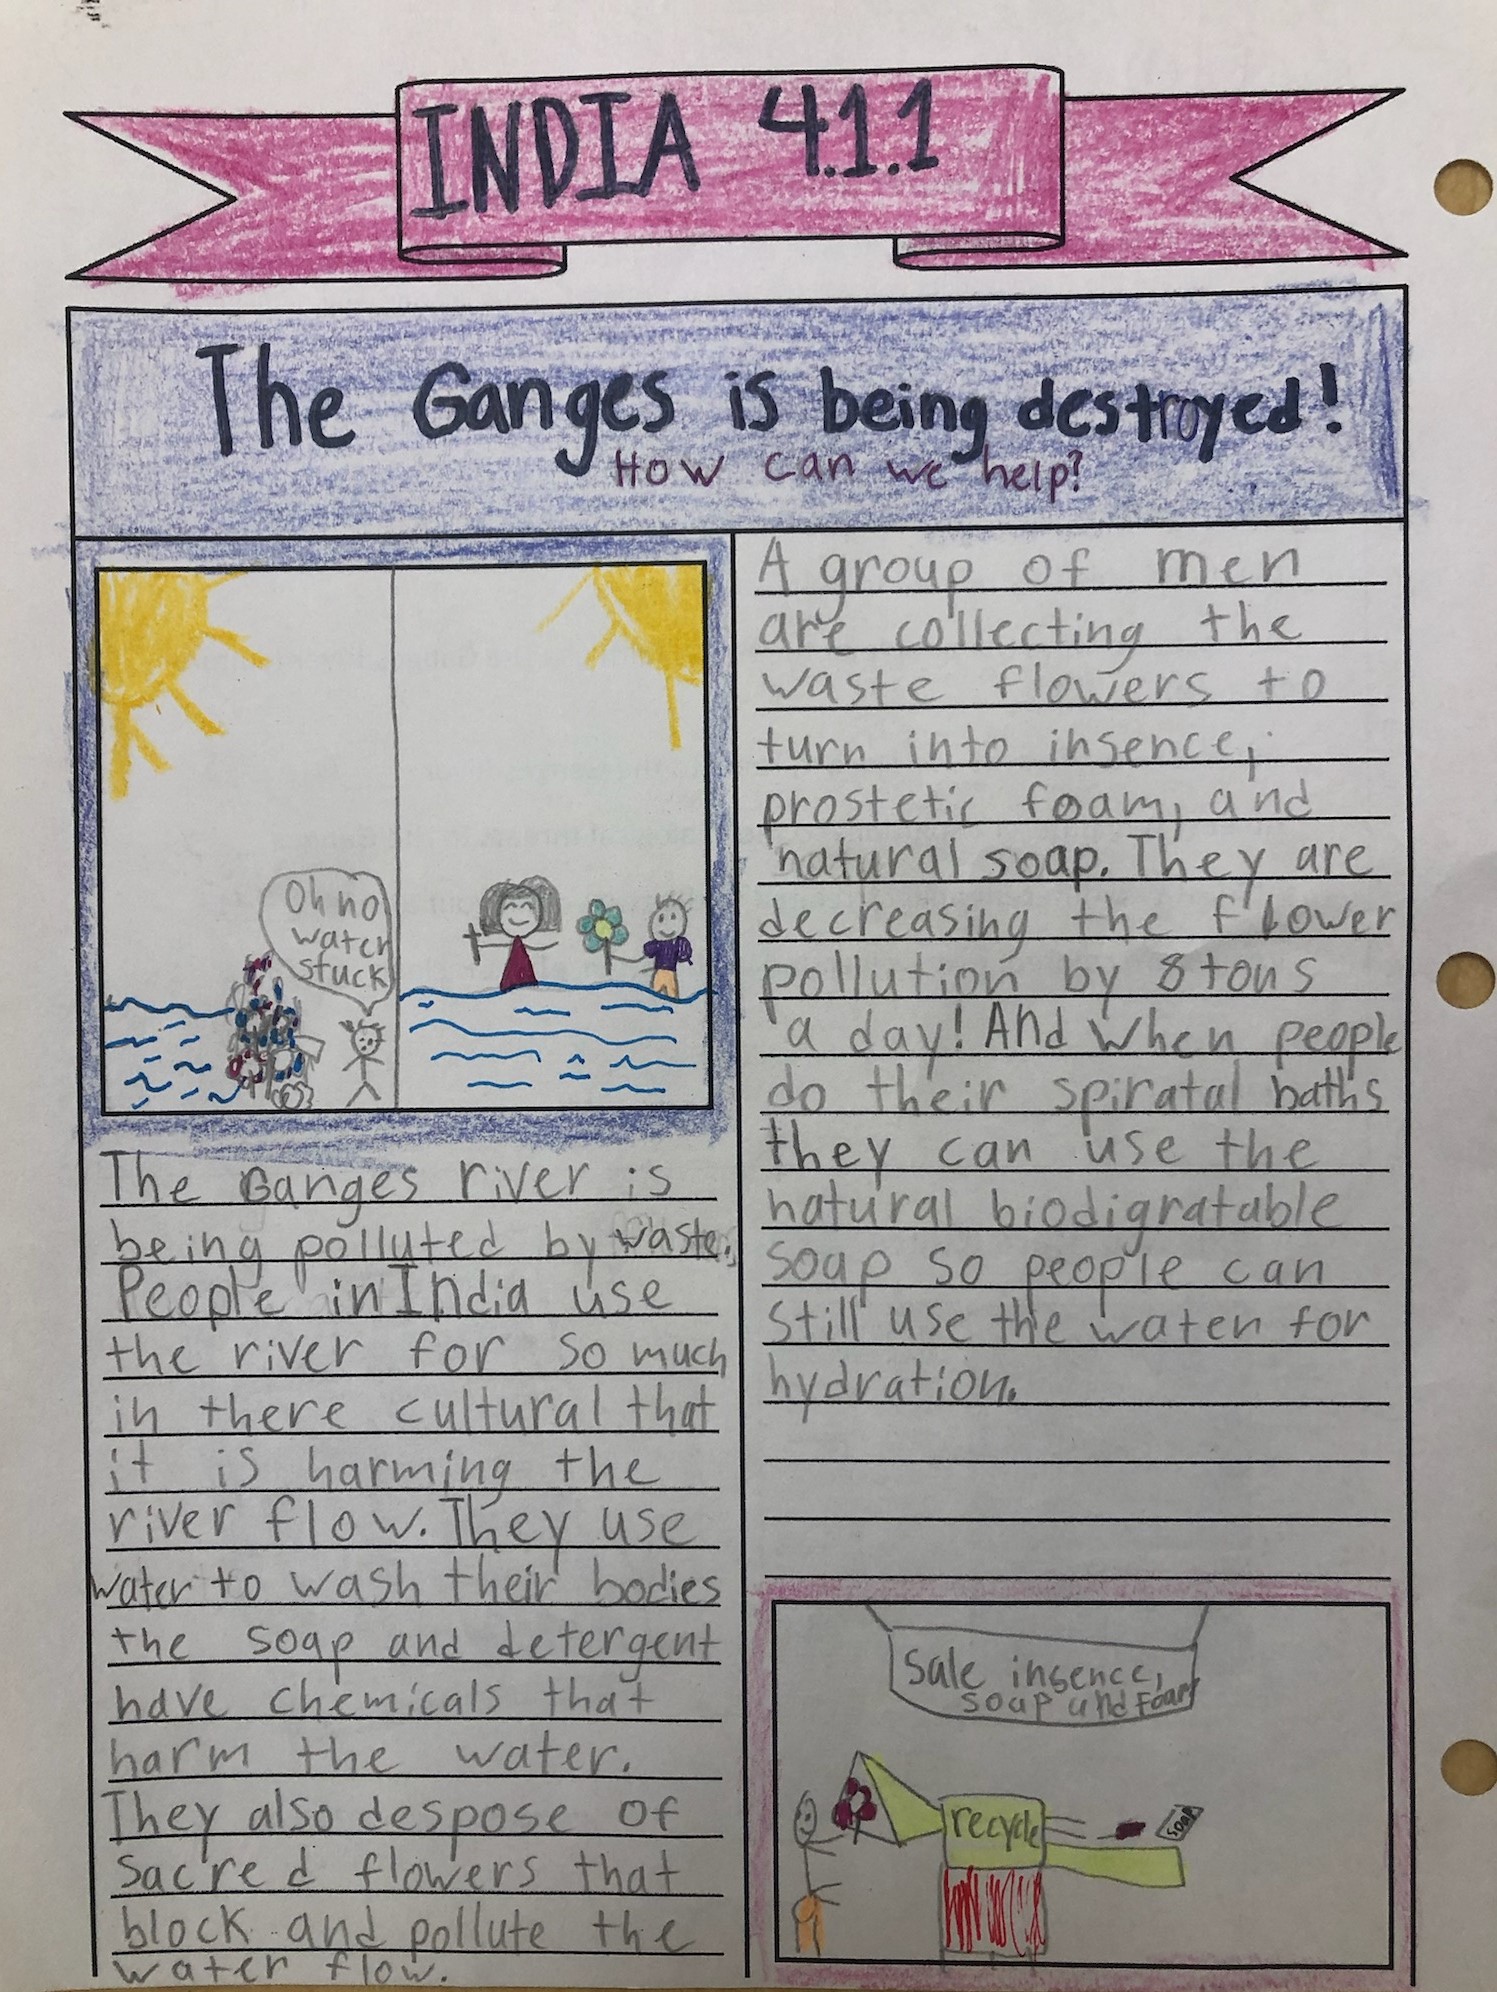 INDIA 4.1.1
The Ganges is being destroyed!
How can we help?
Oh no
water
stuck
The Ganges river is
being polluted by waste.
People in India use
the river for so much
in there cultural that
it is harming the
river flow. They use
water to wash their bodies
the soap and detergent
have chemicals that
harm the water.
They also despose of
sacred flowers that
block and pollute the
water flow.
A group of men
are collecting the
waste flowers to
turn into insence,
prostetic foam, and
natural soap. They are
decreasing the flower
pollution by 8 tons
a day! And when people
do their spiratal baths
they can use the
natural biodigratable
soap so people can
still use the water for
hydration.
Sale insence,
soap and foam
recycle
soap